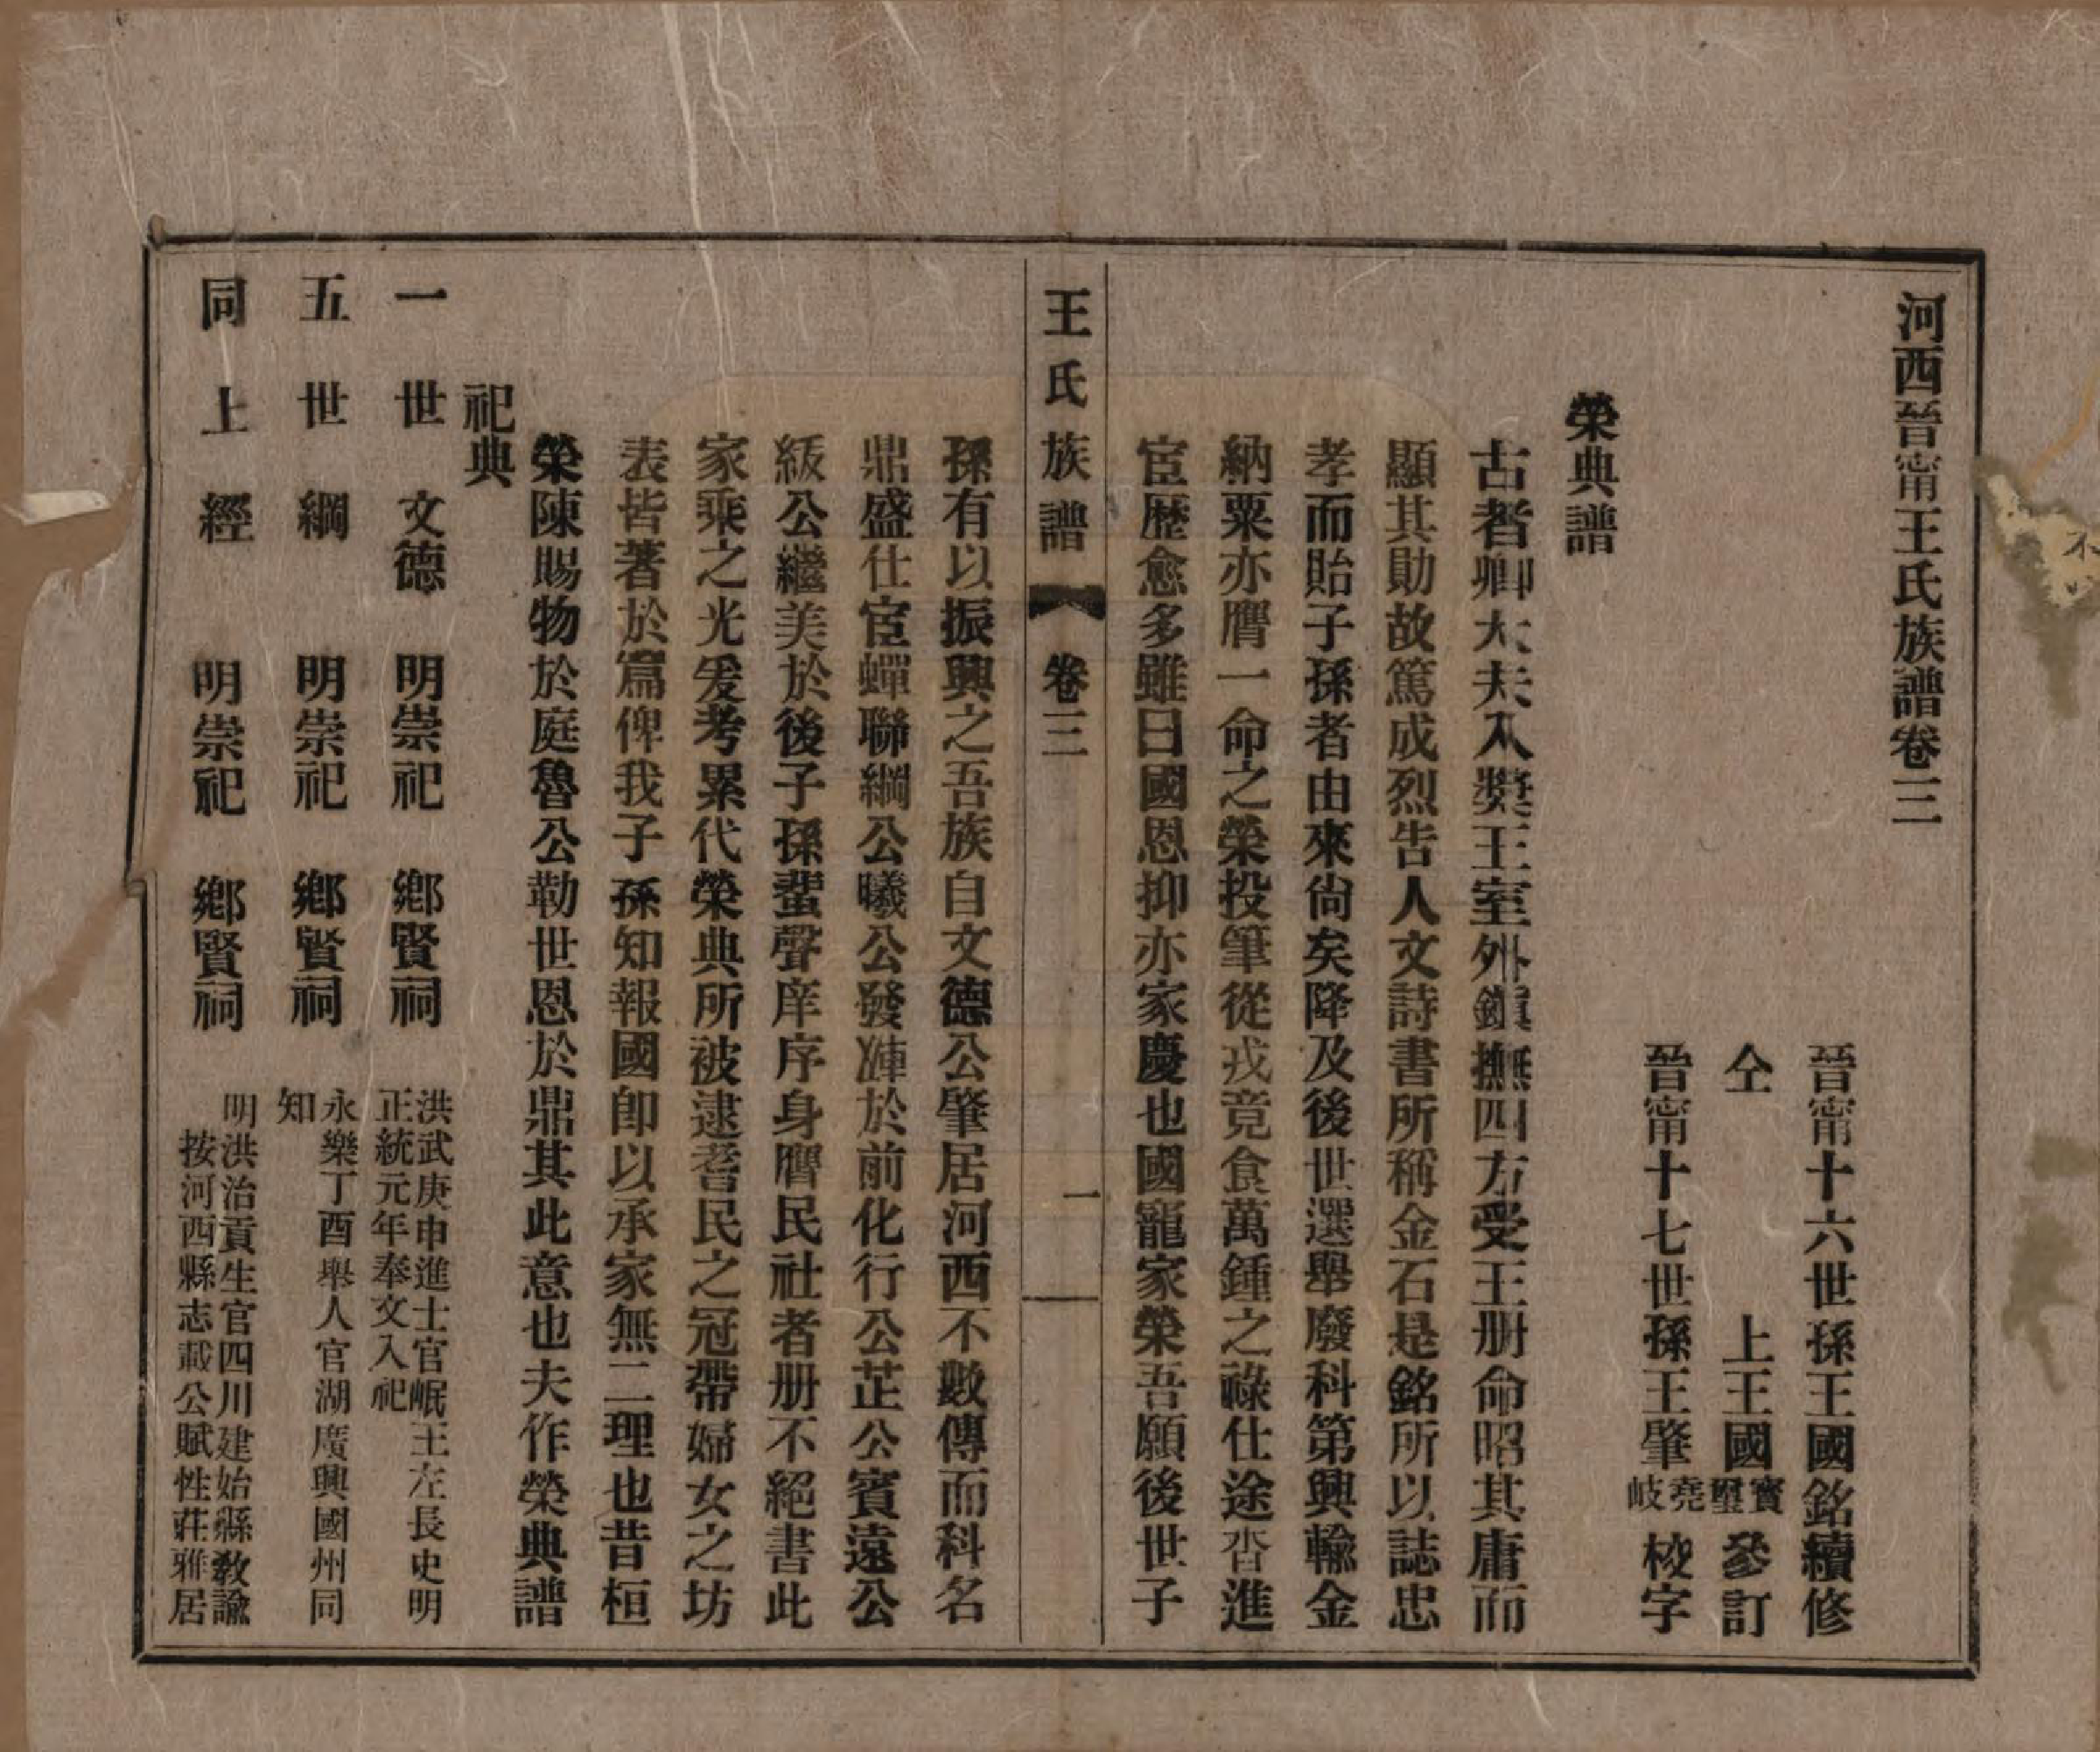 河西晉甯王氏族譜卷三
晉甯十六世孫王國銘續修
仝上王國寶璽參訂
晉甯十七世孫王肇堯岐校字
榮典譜
古者卿大夫入獎王室外鎮撫四方受王册命昭其庸而
顯其勛故篤成烈告人文詩書所稱金石是銘所以誌忠
孝而貽子孫者由來尙矣降及後世選舉廢科第興輸金
納粟亦膺一命之榮投筆從戎竟食萬鍾之祿仕途沓進
宦歷愈多雖曰國恩抑亦家慶也國寵家榮吾願後世子
王氏族譜
卷三
一
孫有以振興之吾族自文德公肇居河西不數傳而科名
鼎盛仕宦蟬聯綱公曦公發煇於前化行公芷公賓遠公
級公繼美於後子孫蜚聲庠序身膺民社者册不絕書此
家乘之光爰考累代榮典所被逮耆民之冠帶婦女之坊
表皆著於篇俾我子孫知報國卽以承家無二理也昔桓
榮陳賜物於庭魯公勒世恩於鼎其此意也夫作榮典譜
祀典
一世 文德 明崇祀 鄉賢祠 洪武庚申進士官岷王左長史明
正統元年奉文入祀
五世 綱 明崇祀 鄉賢祠 永樂丁酉舉人官湖廣興國州同
知
同上 經 明崇祀 鄉賢祠 明洪治貢生官四川建始縣敎諭
按河西縣志載公賦性莊雅居